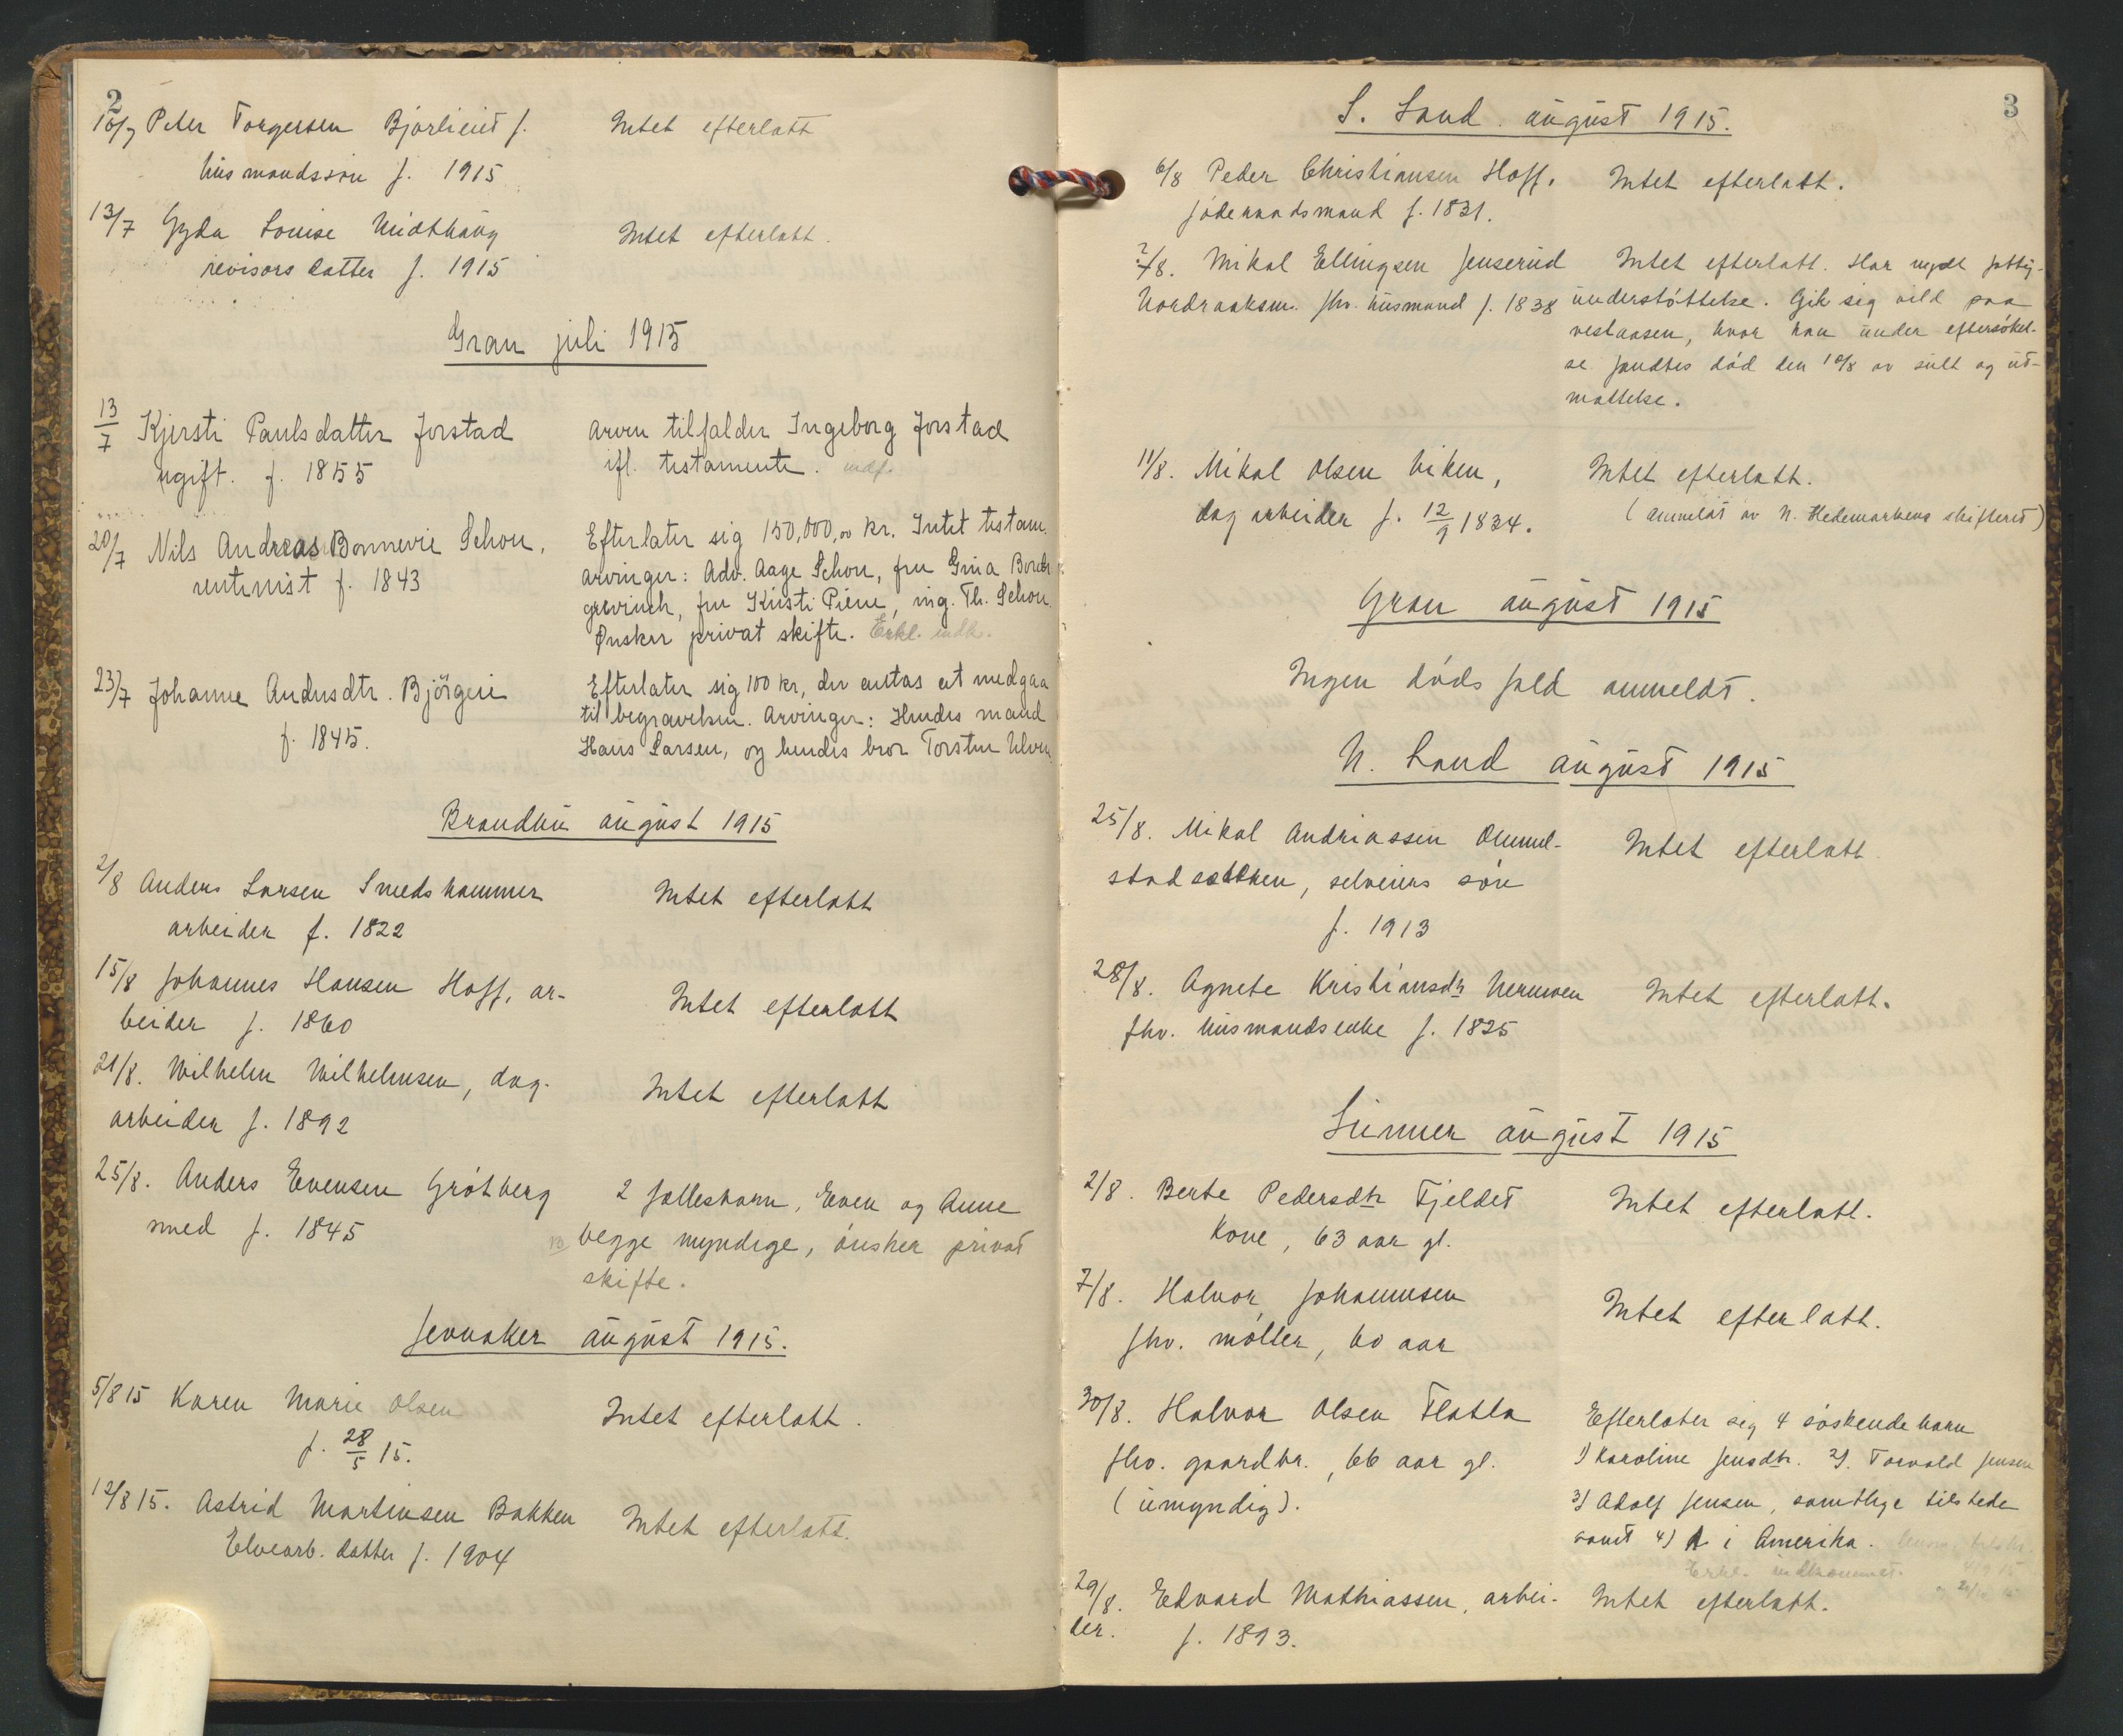 2
10/7 Peter Torgersen Bjørlieiet f.
husmandssøn f. 1915
Intet efterlatt
13/7 Gyda Louise Midthaug
revisorsdatter f. 1915
Intet efterlatt.
Gran juli 1915
13/7 Kjersti Paulsdatter Jorstad
ugift. f. 1855
arven tilfalder Ingeborg Jorstad
ifl. testamente. indf.
20/7 Nils Andreas Bonnevie Schou,
rentenist f. 1843
Efterlater sig 150,000,00 kr. Intet testam.
arvinger: Adv. Aage Schou, fru Gina Borch
grevinck, fru Kirsti Piene, ing. Th. Schou.
Ønsker privat skifte. Erkl. indk.
23/7 Johanne Andersdtr. Bjørgeie
f. 1845.
Efterlater sig 100 kr, der antas at medgaa
til begravelsen. Arvinger: Hendes mand
Hans Larsen, og hendes bror Torsten Ulven
Brandbu august 1915
2/8 Anders Larsen Smedshammer
arbeider f. 1822
Intet efterlatt
15/8 Johannes Hansen Hoff, ar-
beider f. 1860
Intet efterlatt
21/8. Wilhelm Wilhelmsen, dag-
arbeider f. 1892
Intet efterlatt
25/8. Anders Evensen Grötberg
smed f. 1845
2 fællesbarn, Even og Anne
begge myndige, önsker privat
skifte.
Jevnaker august 1915.
5/8 15 Karen Marie Olsen
f. 28/5 15.
Intet efterlatt.
12/8 15. Astrid Martinsen Bakken
Elvearb. datter f. 1904
Intet efterlatt.
3
S. Land august 1915.
6/8 Peder Christiansen Hoff,
föderaadsmand f. 1831.
Intet efterlatt.
2/8. Mikal Ellingsen Jenserud
Nordraaksm. fhv. husmand f. 1838
Intet efterlatt. Har nydt fattig-
understöttelse. Gik sig vild paa
vestaasen, hvor han under eftersökel-
se fandtes död den 10/8 av sult og ut-
mattelse.
11/8. Mikal Olsen Viken,
dagarbeider f. 12/9 1834.
Intet efterlatt.
(anmeldt av N. Hedemarkens skifteret)
Gran august 1915
Ingen dödsfald anmeldt.
N. Land august 1915
25/8. Mikal Andriassen Ommel-
stadsætken, selveiers sön
f. 1913
Intet efterlatt.
28/8. Agnete Kristiansdtr
fhv. husmandsenke f. 1825
Intet efterlatt.
Lunner august 1915
2/8. Berte Pedersdtr Fjeldet
Kone, 63 aar gl.
Intet efterlatt.
7/8. Halvor Johannesen
fhv. möller, 60 aar
Intet efterlatt.
30/8. Halvor Olsen Flatla
fhv. gaardbr., 66 aar gl.
(umyndig).
Efterlater sig 4 söskendebarn
1) Karoline Jensdtr. 2). Torvald Jensen
3) Adolf Jensen, samtlige tilstede
samt 4) i Amerika.
Erkl. indkommet.
29/8. Edvard Mathiassen, arbei-
der. f. 1893.
Intet efterlatt.